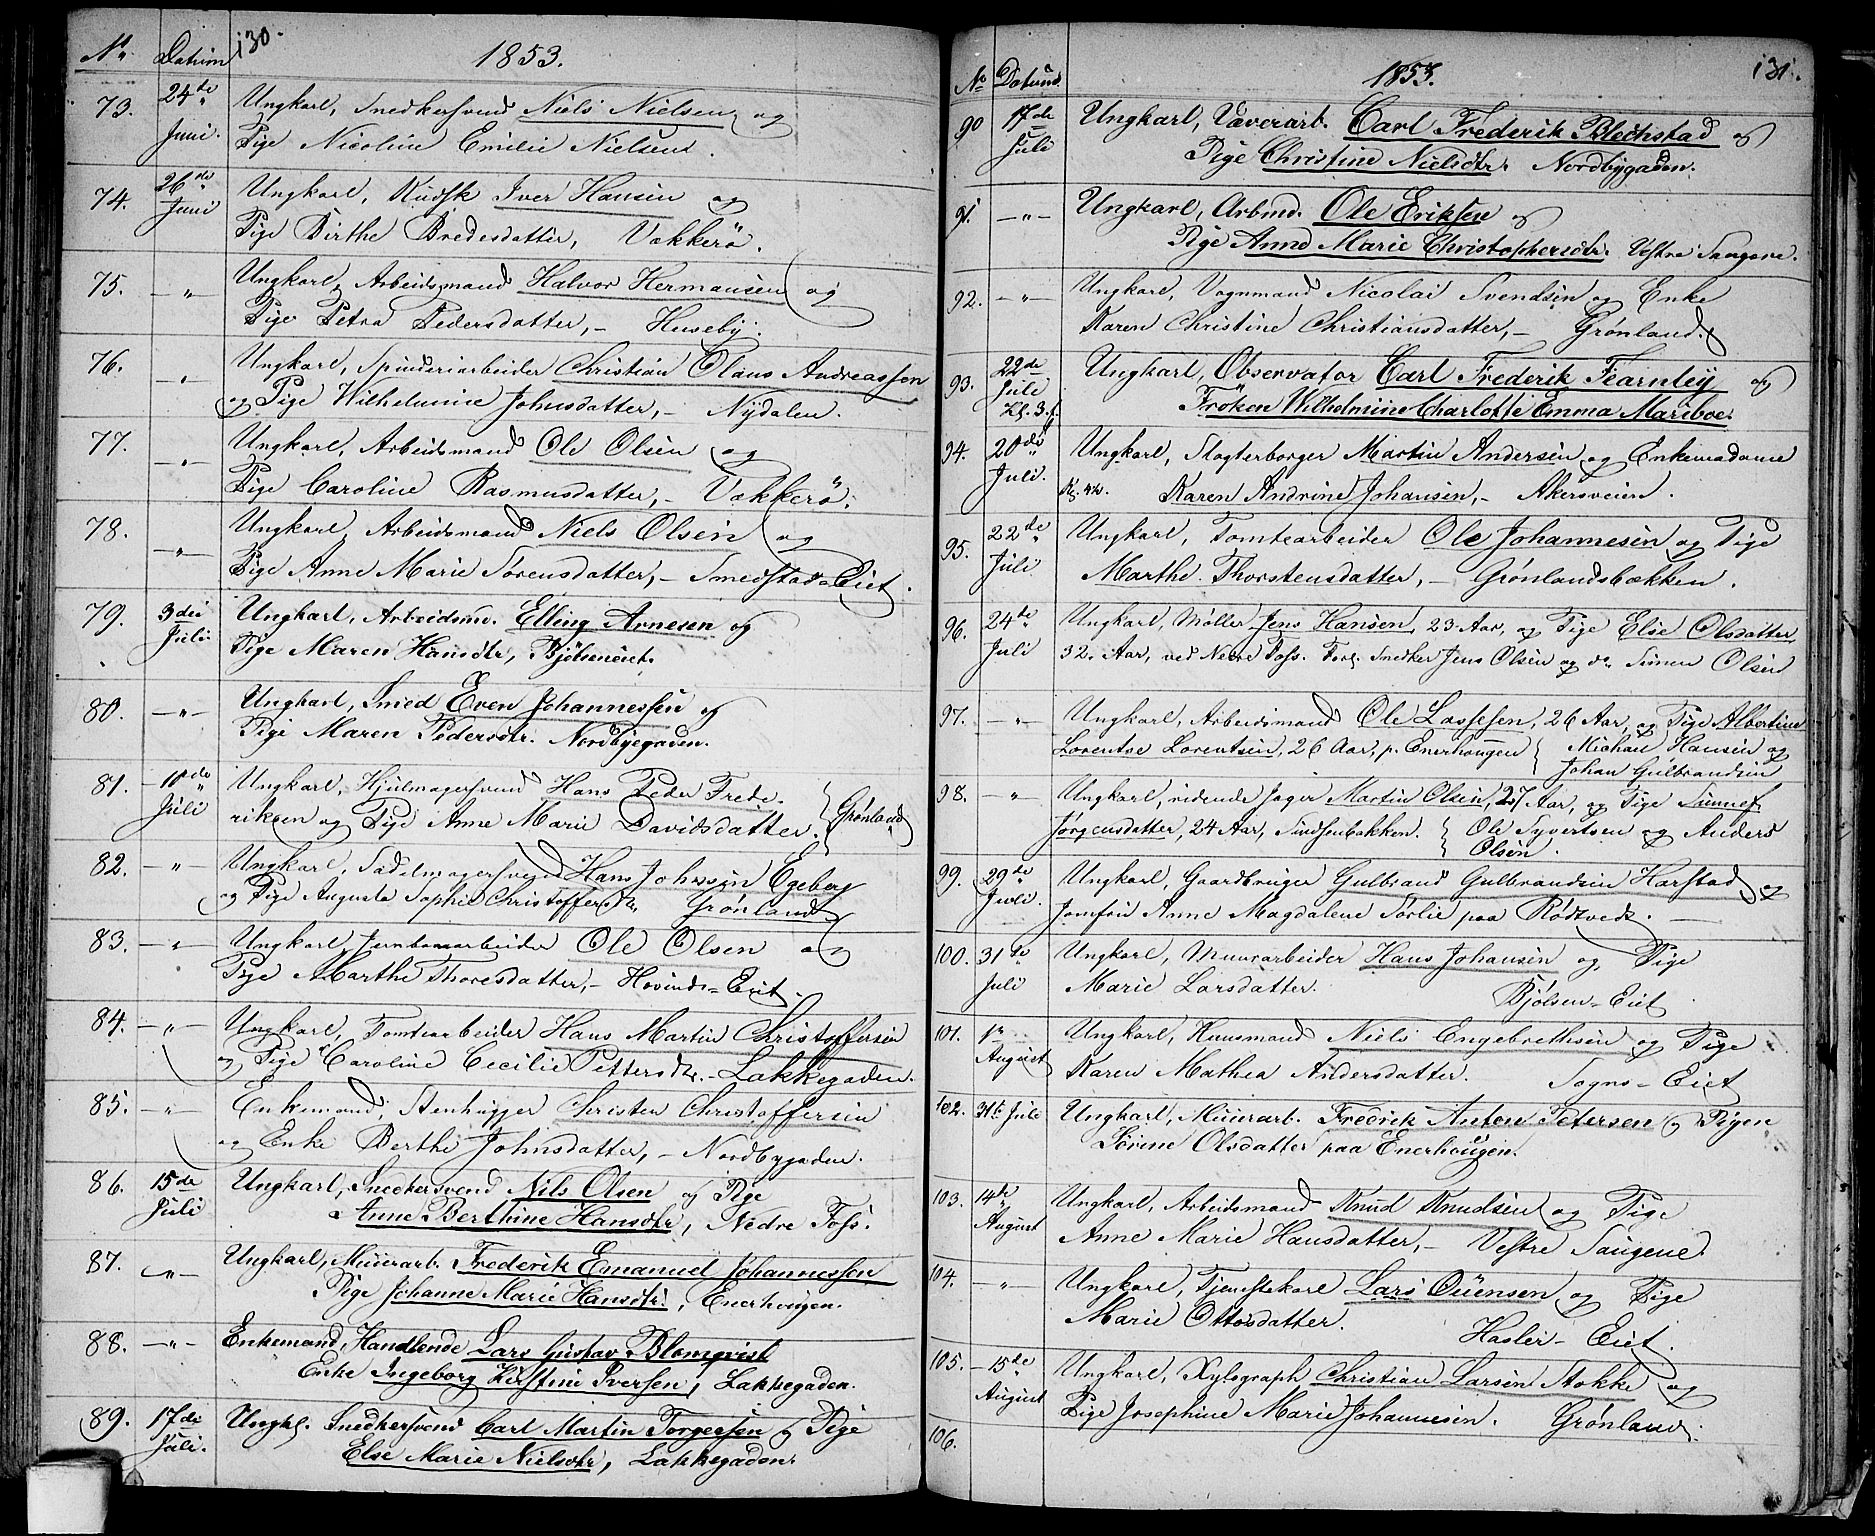 No. Datum 130.
1853.
73. 24de Juni. Ungkarl, Snedkersvend Niels Nielsen og
Pige Nicoline Emilie Nielsen.
74. 26de Juni Ungkarl, Kudsk Iver Hansen og
Pige Birthe Bredesdatter, Vækkerö.
75. —"— Ungkarl, Arbeidsmand Halvor Hermansen og
Pige Petra Pedersdatter, – Huseby.
76. —"— Ungkarl, Spinderiarbeider Christian Olaus Andreassen
og Pige Wilhelmine Johnsdatter, – Nydalen.
77. —"— Ungkarl, Arbeidsmand Ole Olsen og
Pige Caroline Rasmusdatter, – Vækkerö.
78. —"— Ungkarl, Arbeidsmand Niels Olsen og
Pige Anne Marie Sørensdatter, – Smedstad-Eiet.
79. 3die Juli. Ungkarl, Arbeidsmd. Elling Arnesen og
Pige Maren Hansdtr, Bjølseneiet.
80. —"— Ungkarl, Smed Even Johannessen og
Pige Maren Pedersdtr. Nordbyegaden.
81. 10de Juli Ungkarl, Hjulmagersvend Hans Peder Frede-
riksen og Pige Anne Marie Davidsdatter. } Grønland
82. —"— Ungkarl, Sadelmagersvend Hans Johnsen Egeberg
og Pige Augusta Sophie Christoffersdtr. Grønland
83. —"— Ungkarl, Jernbanearbeider Ole Olsen og
Pige Marthe Thoresdatter, – Hovinds-Eiet.
84. —"— Ungkarl, Tomtearbeider Hans Martin Christoffersen
og Pige Caroline Cecilie Pettersdtr. – Lakkegaden.
85. —"— Enkemand, Stenhugger Christen Christoffersen
og Enke Berthe Johnsdatter, – Nordbygaden.
86. 15de Juli Ungkarl, Snedkersvend Nils Olsen og Pige
Anne Berthine Hansdtr, Nedre Foss.
87. —"— Ungkarl, Muurarb. Frederik Emanuel Johannessen
Pige Johanne Marie Hansdtr., Enerhougen.
88. —"— Enkemand, Handlende Lars Gustav Blomqvist
Enke Ingeborg Kirstine Iversen, Lakkegaden.
89. 17de Juli. Ungkl. Snedkersvend Carl Martin Torgersen og Pige
Else Marie Nielsdtr, Lakkegaden.
No Datum 1853. 131.
90 17de Juli Ungkarl, Væverarb. Carl Frederik Blechstad og
Pige Christine Nielsdtr. Nordbygaden.
91. —"— Ungkarl, Arbmd. Ole Eriksen og
Pige Anne Marie Christophersdtr. Vestre Saugene.
92. —"— Ungkarl, Vognmand Nicolai Svendsen og Enke
Karen Christine Christiansdatter, – Grønland.
93. 22de Juli Kl. 3. Ungkarl, Observator Carl Frederik Fearnley og
Frøken Wilhelmine Charlotte Emma Mariboe.
94. 20de Juli. Ungkarl, Slagterborger Martin Andersen og Enkemadame
Kl. 4½. Karen Andrine Johansen, – Akersveien.
95. 22de Juli Ungkarl, Tomtearbeider Ole Johannesen og Pige
Marthe Thorstensdatter, – Grønlandsbækken.
96. 24de Juli Ungkarl, Møller Jens Hansen, 23 Aar, og Pige Else Olsdatter
32 Aar, ved Nedre Foss. Forl. Snedker Jens Olsen og do. Simen Olsen
97. —"— Ungkarl, Arbeidsmand Ole Lassesen, 26 Aar, og Pige Albertine
Lorentse Lorentsen, 26 Aar, p. Enerhougen { Michael Hansen og
Johan Gulbrandsen
98. —"— Ungkarl, ridende Jæger Martin Olsen, 27 Aar, og Pige Sunnef
Jørgensdatter, 24 Aar, Sindsenbakken. { Ole Syvertsen og Anders
Olsen.
99. 29de Juli. Ungkarl, Gaardbruger Gulbrand Gulbrandsen Harstad og
Jomfru Anne Magdalene Sørlie paa Rödtvedt. —
100. 31te Juli Ungkarl, Muurarbeider Hans Johansen og Pige
Marie Larsdatter. Bjølsen-Eiet
101. 1ste August Ungkarl, Huusmand Niels Engebrethsen og Pige
Karen Mathea Andersdatter. Sogns-Eiet
102. 31te Juli Ungkarl, Muurarb. Fredrik Anton Petersen og Pigen
Sörine Olsdatter paa Enerhougen.
103. 14de August Ungkarl, Arbeidsmand Knud Knudsen og Pige
Anne Marie Hansdatter, – Vestre Saugene.
104. —"— Ungkarl, Tjenestekarl Lars Ouensen og Pige
Marie Ottosdatter. Hasler-Eiet.
105. 15de August Ungkarl, Xylograph Christian Larsen Stokke og
Pige Josephine Marie Johannesen. Grønland.
106.